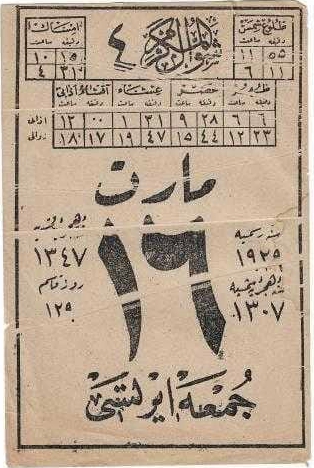 شوال المكرم
٤
طلوع شمس
دقيقه ساعت
٥٥ ١١
١١ ٦
امساك
دقيقه ساعت
١٠
٣١ ٤
ظهر عصر عشاء آقشام اذانى
دقيقه ساعت دقيقه ساعت دقيقه ساعت دقيقه ساعت
٦ ٦ ٢٨ ٩ ٣١ ١ ٠٠ ١٢ اذانى
٢٣ ١٢ ٤٤ ١٥ ٤٧ ١٩ ١٧ ١٨ زوالى
مارت
١٦
سنه رسميه
١٩٢٩
١٣٠٧
١٣٤٧
روز قاسم
١٢٩
جمعه ايرتسى